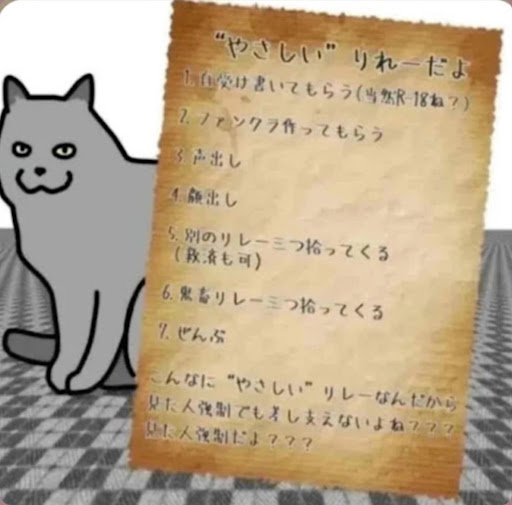 “やさしい” りれーだよ
1. 自受け書いてもらう(当然R-18ね？)
2. ファンクラ作ってもらう
3. 声出し
4. 顔出し
5. 別のリレー三つ拾ってくる
(救済も可)
6. 鬼畜リレー三つ拾ってくる
7. ぜんぶ
こんなに “やさしい” リレーなんだから
見た人強制でも差し支えないよね？？？
見た人強制だよ？？？